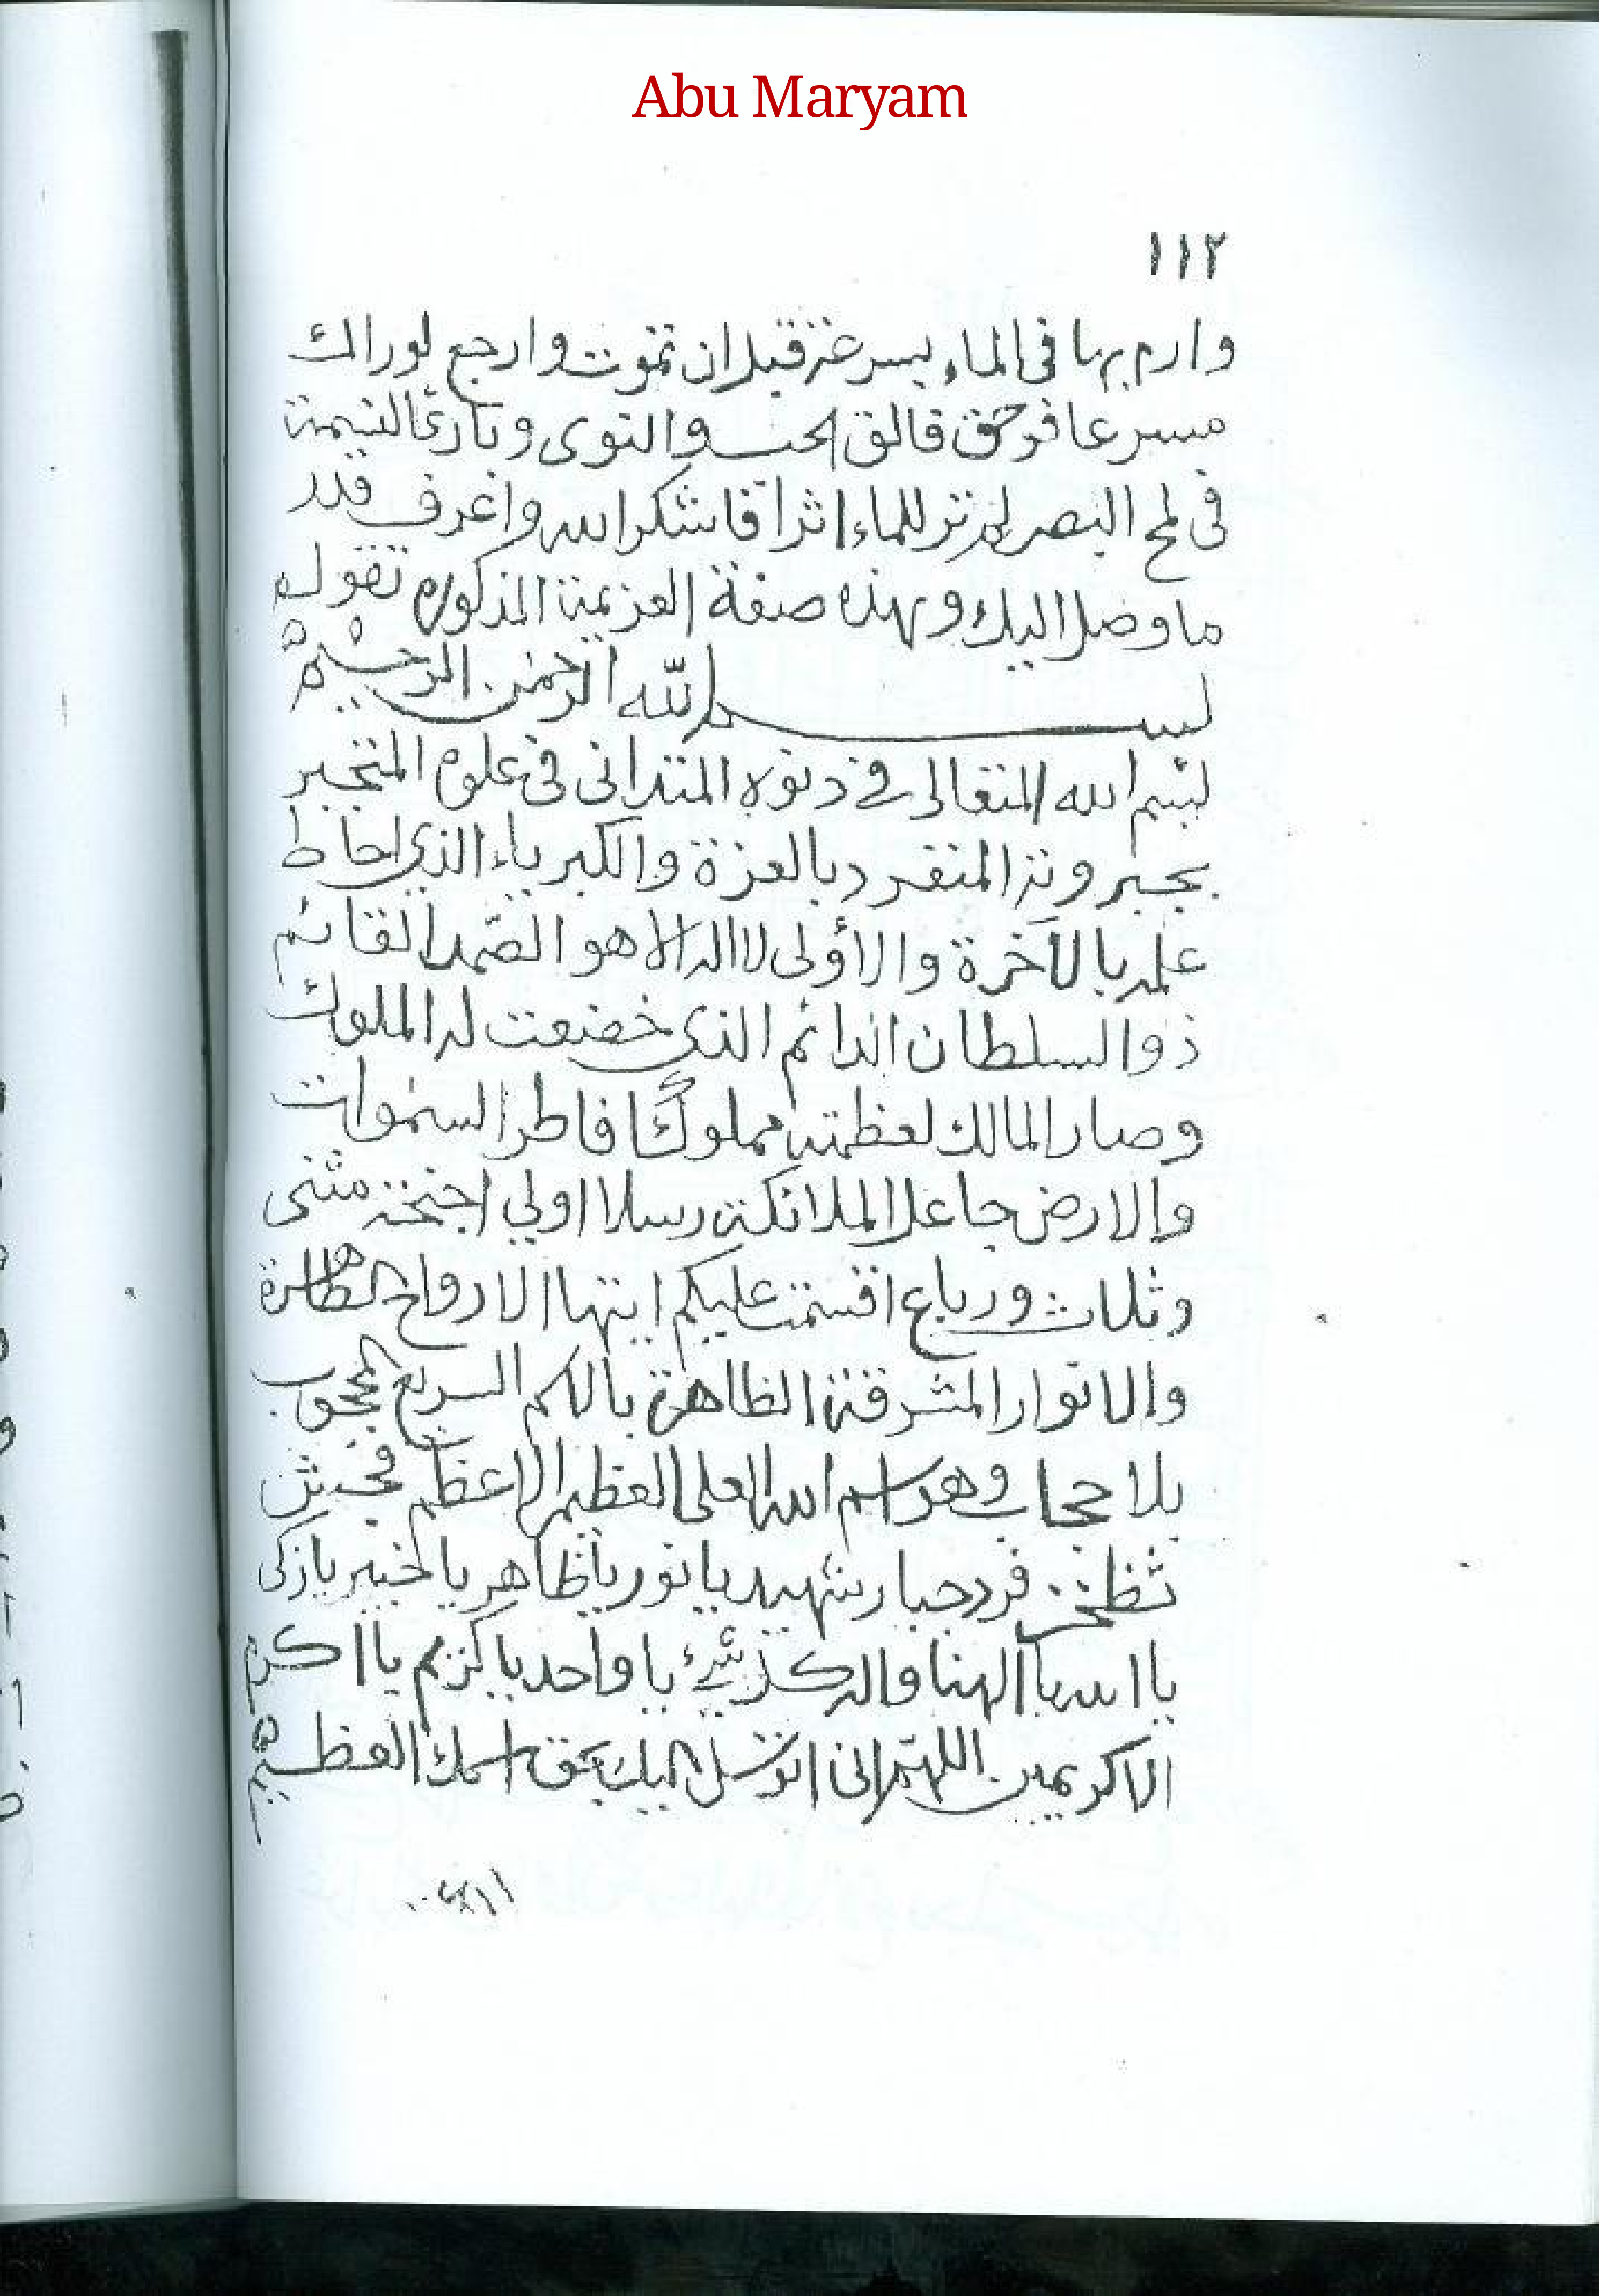 Abu Maryam
١١٢
وارم بها في الماء بسرعة قبل ان تموت وارجع لوراك
مسرعا فوحق فالق الحب والنوى وبارئ النسمة
في لمح البصر لم تر للماء اثرا فاشكر الله واعرف قدر
ما وصل اليك وهذه صفة العزيمة المذكوره تقول
بسم الله الرحمن الرحيم
بسم الله المتعالى في دنوه المتدانى فى علوه المتجبر
بجبروته المنفرد بالعزة والكبرياء الذي احاط
علمه بالآخرة والأولى لا اله الا هو الصّمد القائم
ذو السلطان الدائم الذي خضعت له الملوك
وصار المالك لعظمته مملوكًا فاطر السموات
والارض جاعل الملائكة رسلا اولي اجنحة مثنى
وثلاث ورباع اقسمت عليكم ايتها الارواح الطاهرة
والانوار المشرقة الظاهرة بالكم السريع المحجوب
بلا حجاب وهو اسم الله العلى العظيم الاعظم فجش
ثظخز فرد جبار شهيد يا نور يا ظاهر يا خبير يا زكى
يا الله يا الهنا واله كل شيئ يا واحد يا كريم يا اكرم
الاكرمين اللهم انى اتوسل اليك بحق اسمك العظيم